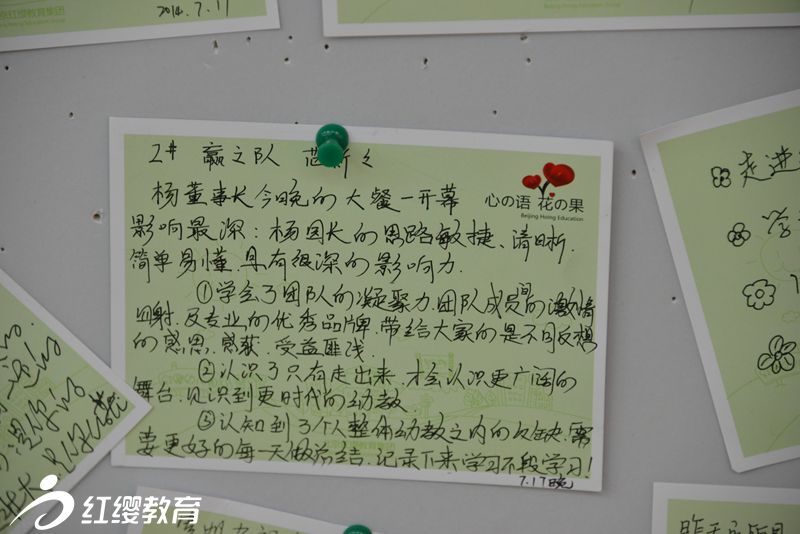 京红缨教育集团
2014.7.17
2# 赢之队
心の语 花の果
Beijing Hoing Education
杨董事长今晚的大餐一开幕
影响最深：杨园长的思路敏捷、清晰.
简单易懂.具有很深的影响力.
①学会了团队的凝聚力团队成员间的激情
四射.及专业的优秀品牌.带给大家的是不同反想
的感恩.感获.受益匪浅.
②认识了只有走出来.才会认识更广阔的
舞台.见识到更时代的功教
③认知到了个人整体功教之内的欠缺.需
要更好的每一天做总结.记录下来学习不段学习！
7.17晚
走进
学
红缨教育